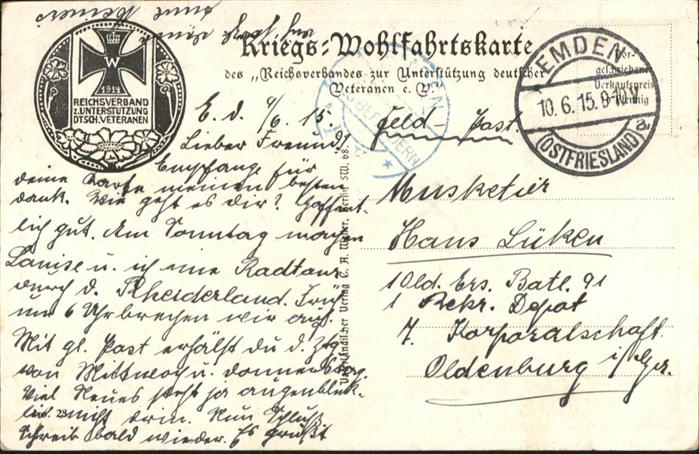 Kriegs-Wohlfahrtskarte
des „Reichsverbandes zur Unterstützung deutscher
Veteranen e. V."
W
1914
REICHSVERBAND
Z. UNTERSTÜTZUNG
DTSCH. VETERANEN
EMDEN
10.6.15. 9-10 V.
(OSTFRIESLAND)
E. d. 9/6. 15.
Lieber Freund!
Empfange für
deine Karte meinen besten
dank. Wie geht es dir? Hoffent-
lich gut. Am Sonntag machen
Lanise u. ich eine Radtour
durch d. Rheiderland. Früh
um 6 Uhr brechen wir auf.
Mit gl. Post erhälst du d. Ztg.
von Mittwoch u. donnerstg.
Viel Neues steht ja augenblick-
lich nicht drin. Nun Schluß
Schreib bald wieder. Es grüßt
Feld-Post.
Musketier
Hans Lüken
1 Old. Ers. Batl. 91
1 Rekr. Depot
7. Korporalschaft
Oldenburg i/Gr.
Verkaufspreis